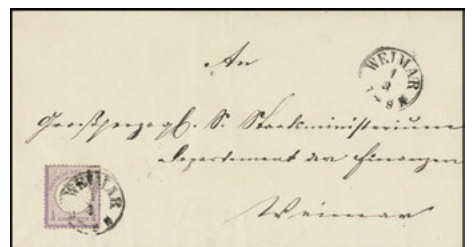 An
WEIMAR
1
3
7-8 N
Großherzogl. S. Staatsministerium
Departement der Finanzen
WEIMAR
Weimar